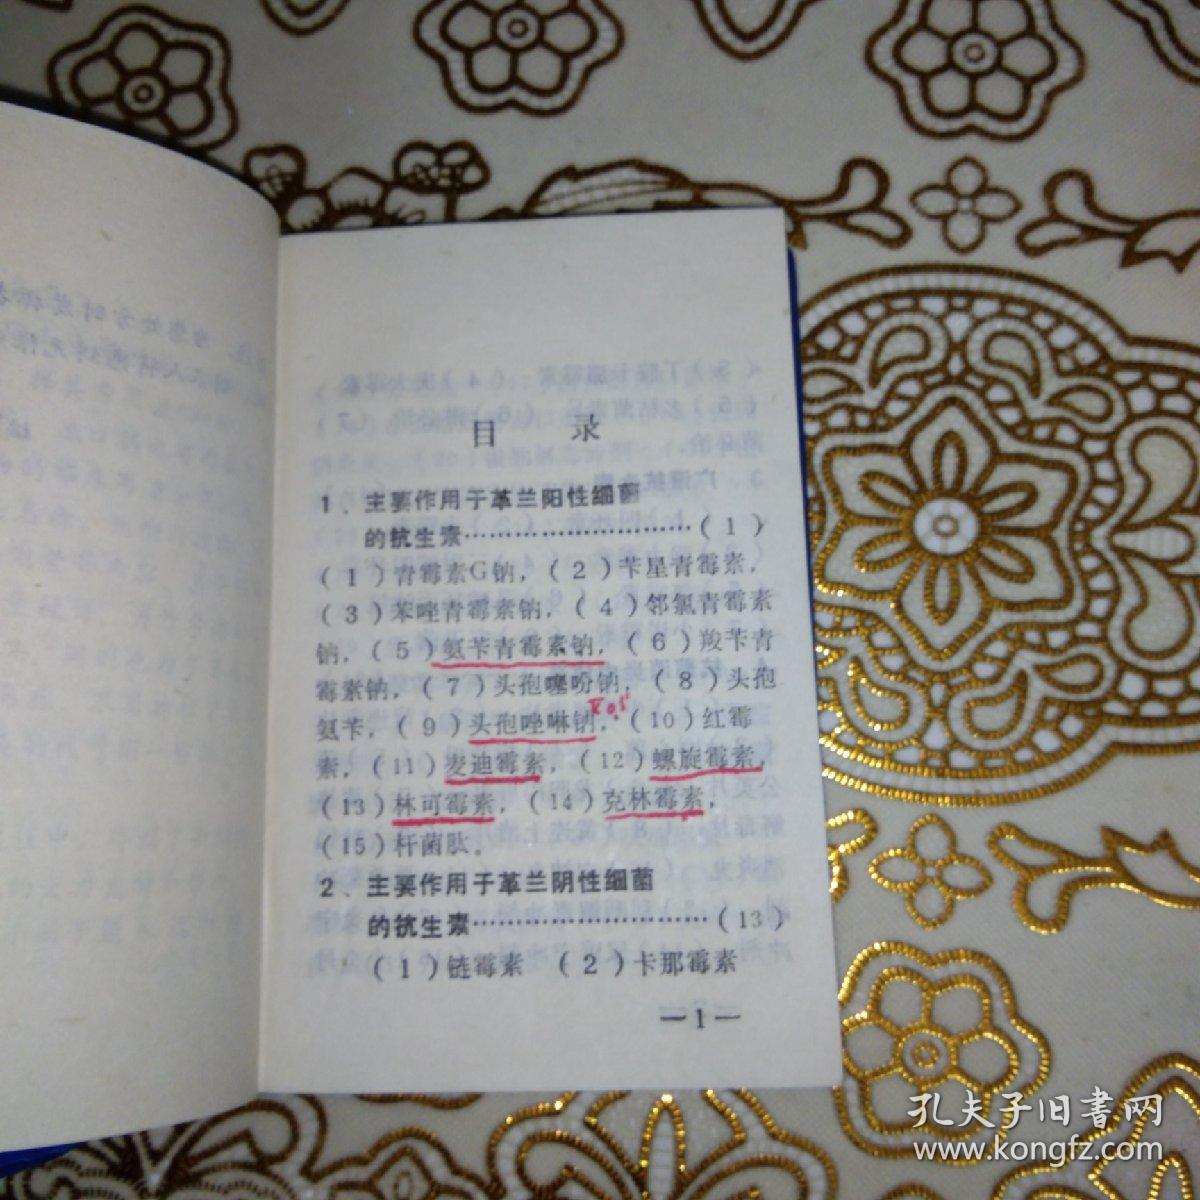 目 录
1、主要作用于革兰阳性细菌
的抗生素……………………………(1)
(1)青霉素G钠，(2)苄星青霉素，
(3)苯唑青霉素钠，(4)邻氯青霉素
钠，(5)氨苄青霉素钠，(6)羧苄青
霉素钠，(7)头孢噻吩钠，(8)头孢
氨苄，(9)头孢唑啉钠，(10)红霉
素，(11)麦迪霉素，(12)螺旋霉素，
(13)林可霉素，(14)克林霉素，
(15)杆菌肽。
2、主要作用于革兰阴性细菌
的抗生素……………………………(13)
(1)链霉素 (2)卡那霉素
—1—
孔夫子旧书网
www.kongfz.com